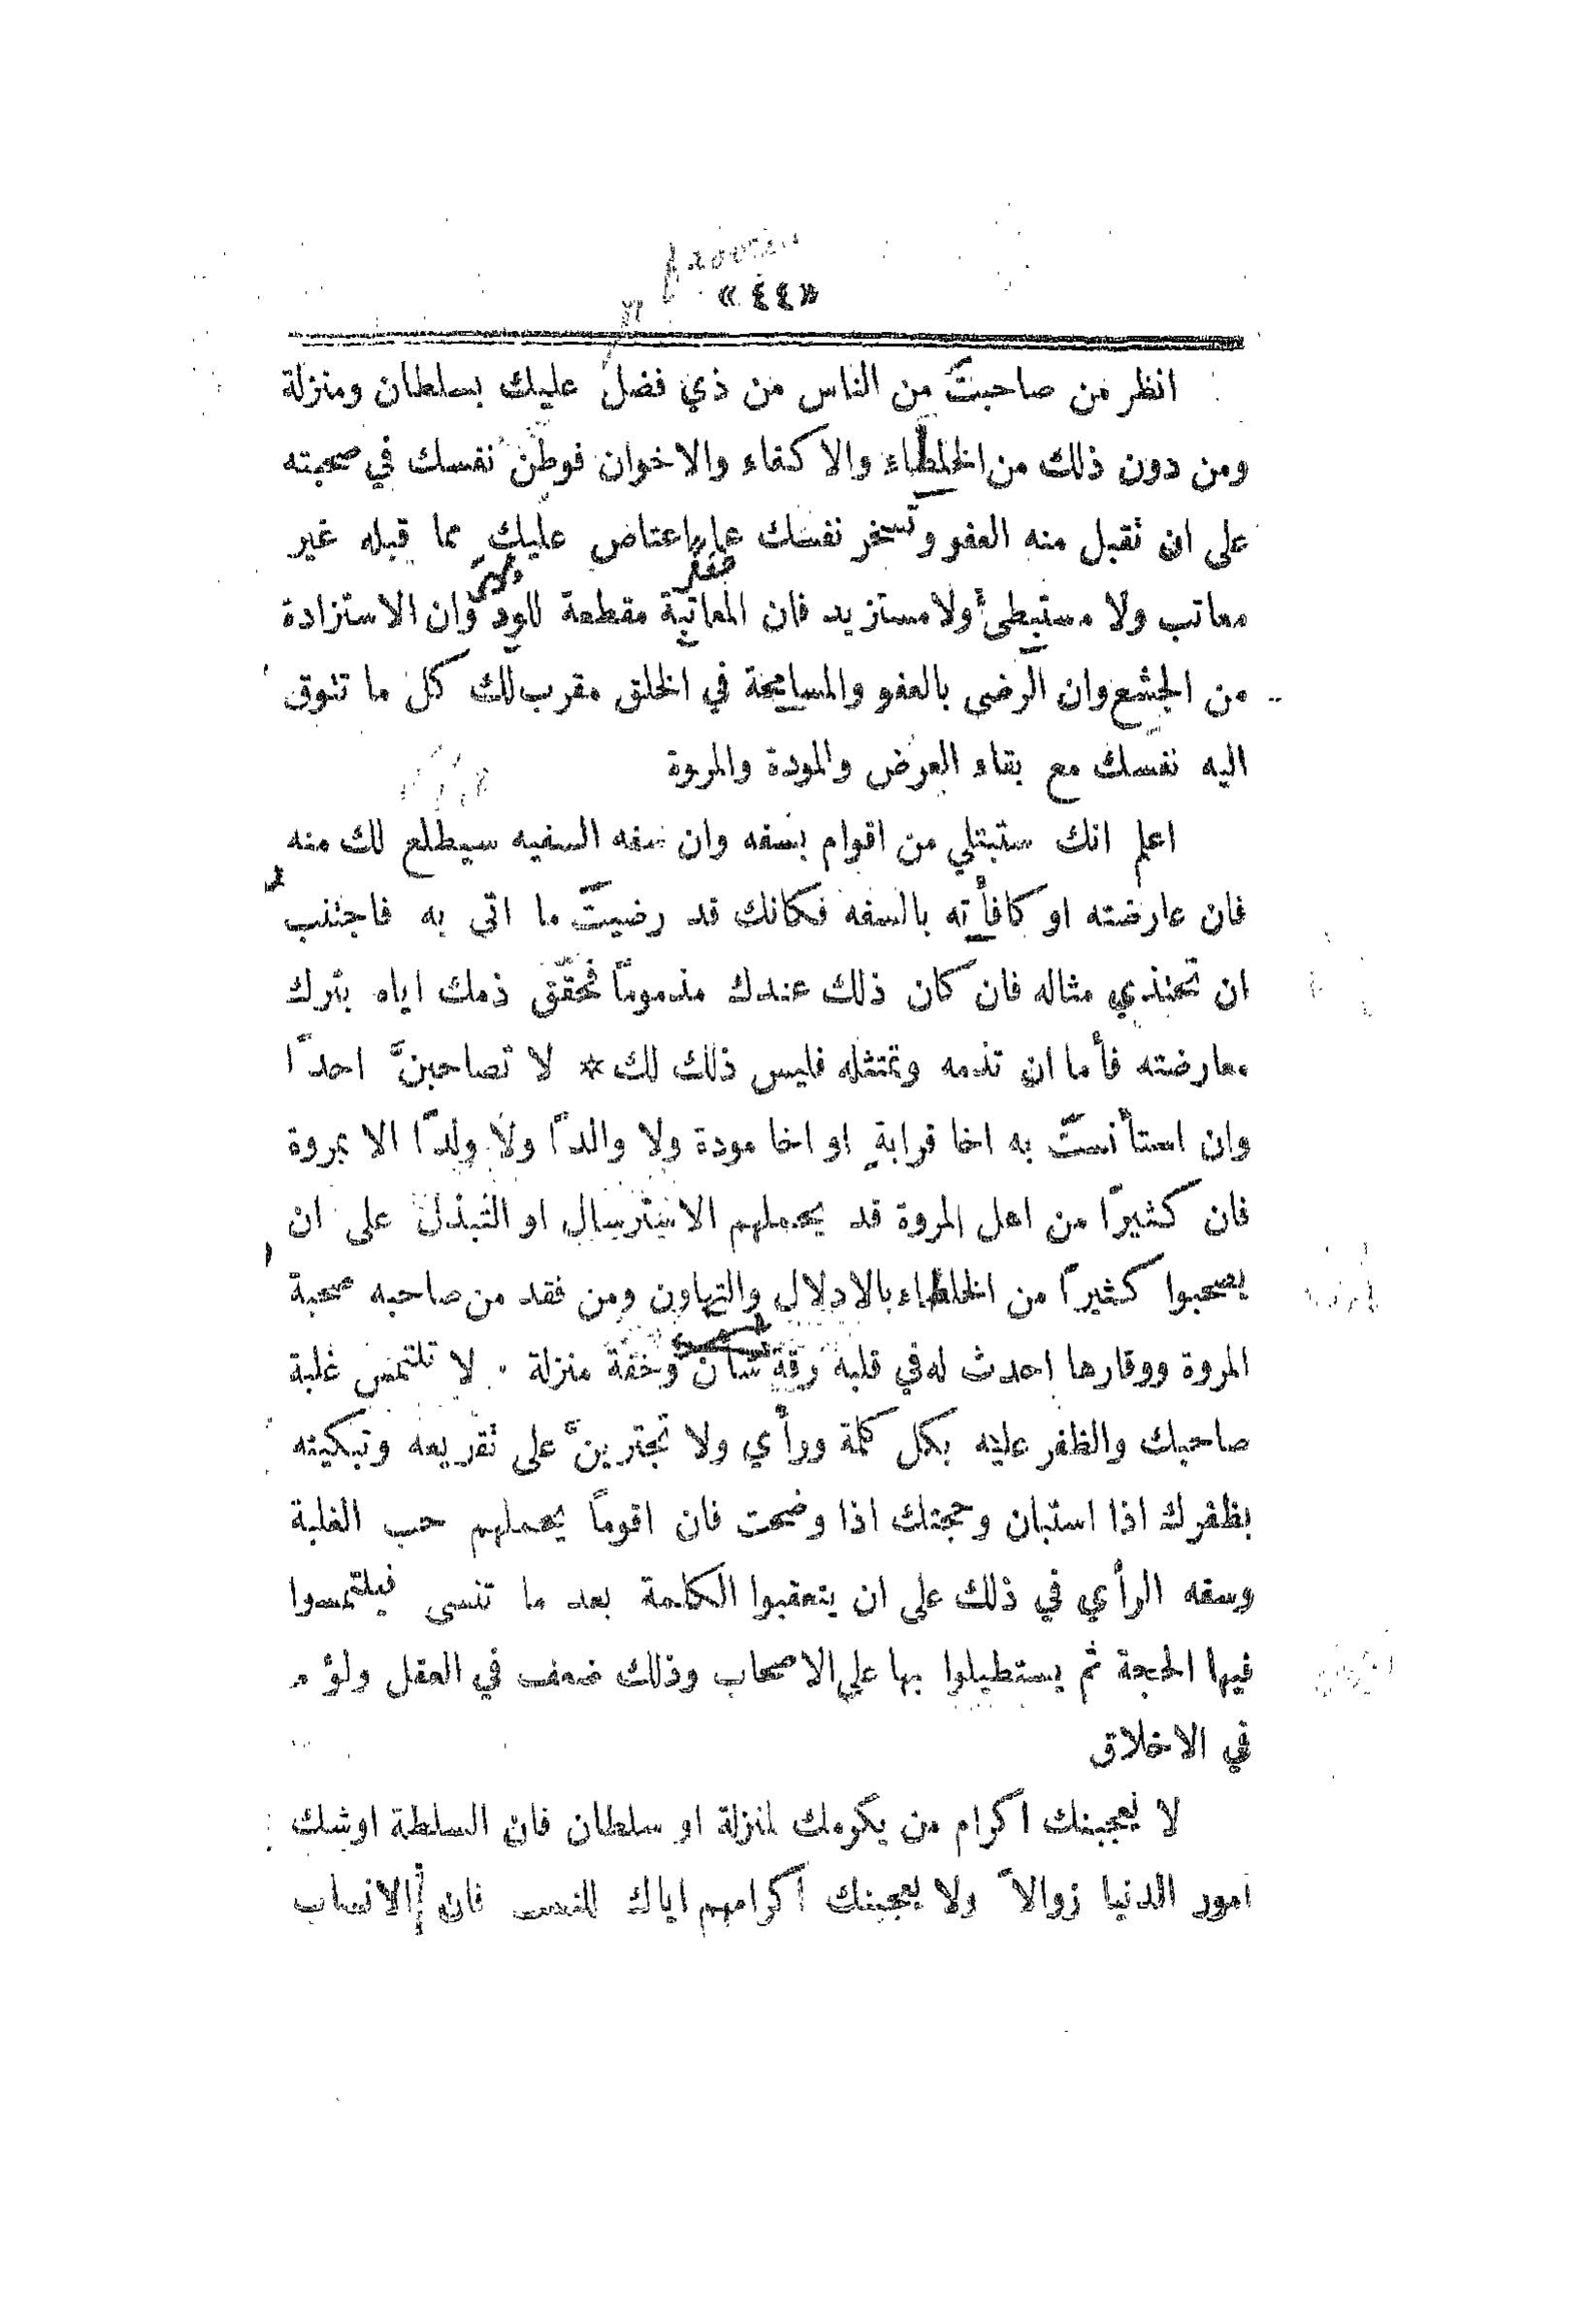 «٤٤»
انظر من صاحبتَ من الناس من ذي فضل عليك بسلطان ومنزلة
ومن دون ذلك من الخلطاء والاكفاء والاخوان فوطّن نفسك في صحبته
على ان نقبل منه العفو وتسخر نفسك عما اعتاض عليك مما قبله غير
معاتب ولا مستبطئ ولا مستزيد فان المعاتبة مقطعة للود وان الاستزادة
من الجشع وان الرضى بالعفو والمسامحة في الخلق مقرب لك كل ما نتوق
اليه نفسك مع بقاء العرض والمودة والمروة
اعلم انك ستبتلي من اقوام بسفه وان سفه السفيه سيطلع لك منه
فان عارضته او كافأته بالسفه فكانك قد رضيتَ ما اتى به فاجتنب
ان تحتذي مثاله فان كان ذلك عندك مذموماً فحقّق ذمك اياه بترك
معارضته فأما ان تذمه وتمتثله فليس ذلك لك * لا تصاحبنَّ احداً
وان استأنستَ به اخا قرابةٍ او اخا مودة ولا والداً ولا ولداً الا بمروة
فان كثيراً من اهل المروة قد يحملهم الاسترسال او التبذل على ان
يصحبوا كثيراً من الخلطاء بالادلال والتهاون ومن فقد من صاحبه صحبة
المروة ووقارها احدث له في قلبه رقة شأن وخفة منزلة . لا تلتمس غلبة
صاحبك والظفر عليه بكل كلمة ورأي ولا تجترينَّ على نقريعه وتبكيته
بظفرك اذا استبان وحجتك اذا وضحت فان اقوماً يحملهم حب الغلبة
وسفه الرأي في ذلك على ان يتعقبوا الكلمة بعد ما تنسى فيلتمسوا
فيها الحجة ثم يستطيلوا بها على الاصحاب وذلك ضعف في العقل ولؤم
في الاخلاق
لا يعجبنك اكرام من يكرمك لمنزلة او سلطان فان السلطة اوشك
امور الدنيا زوالاً ولا يعجبنك اكرامهم اياك للنسب فان الانساب